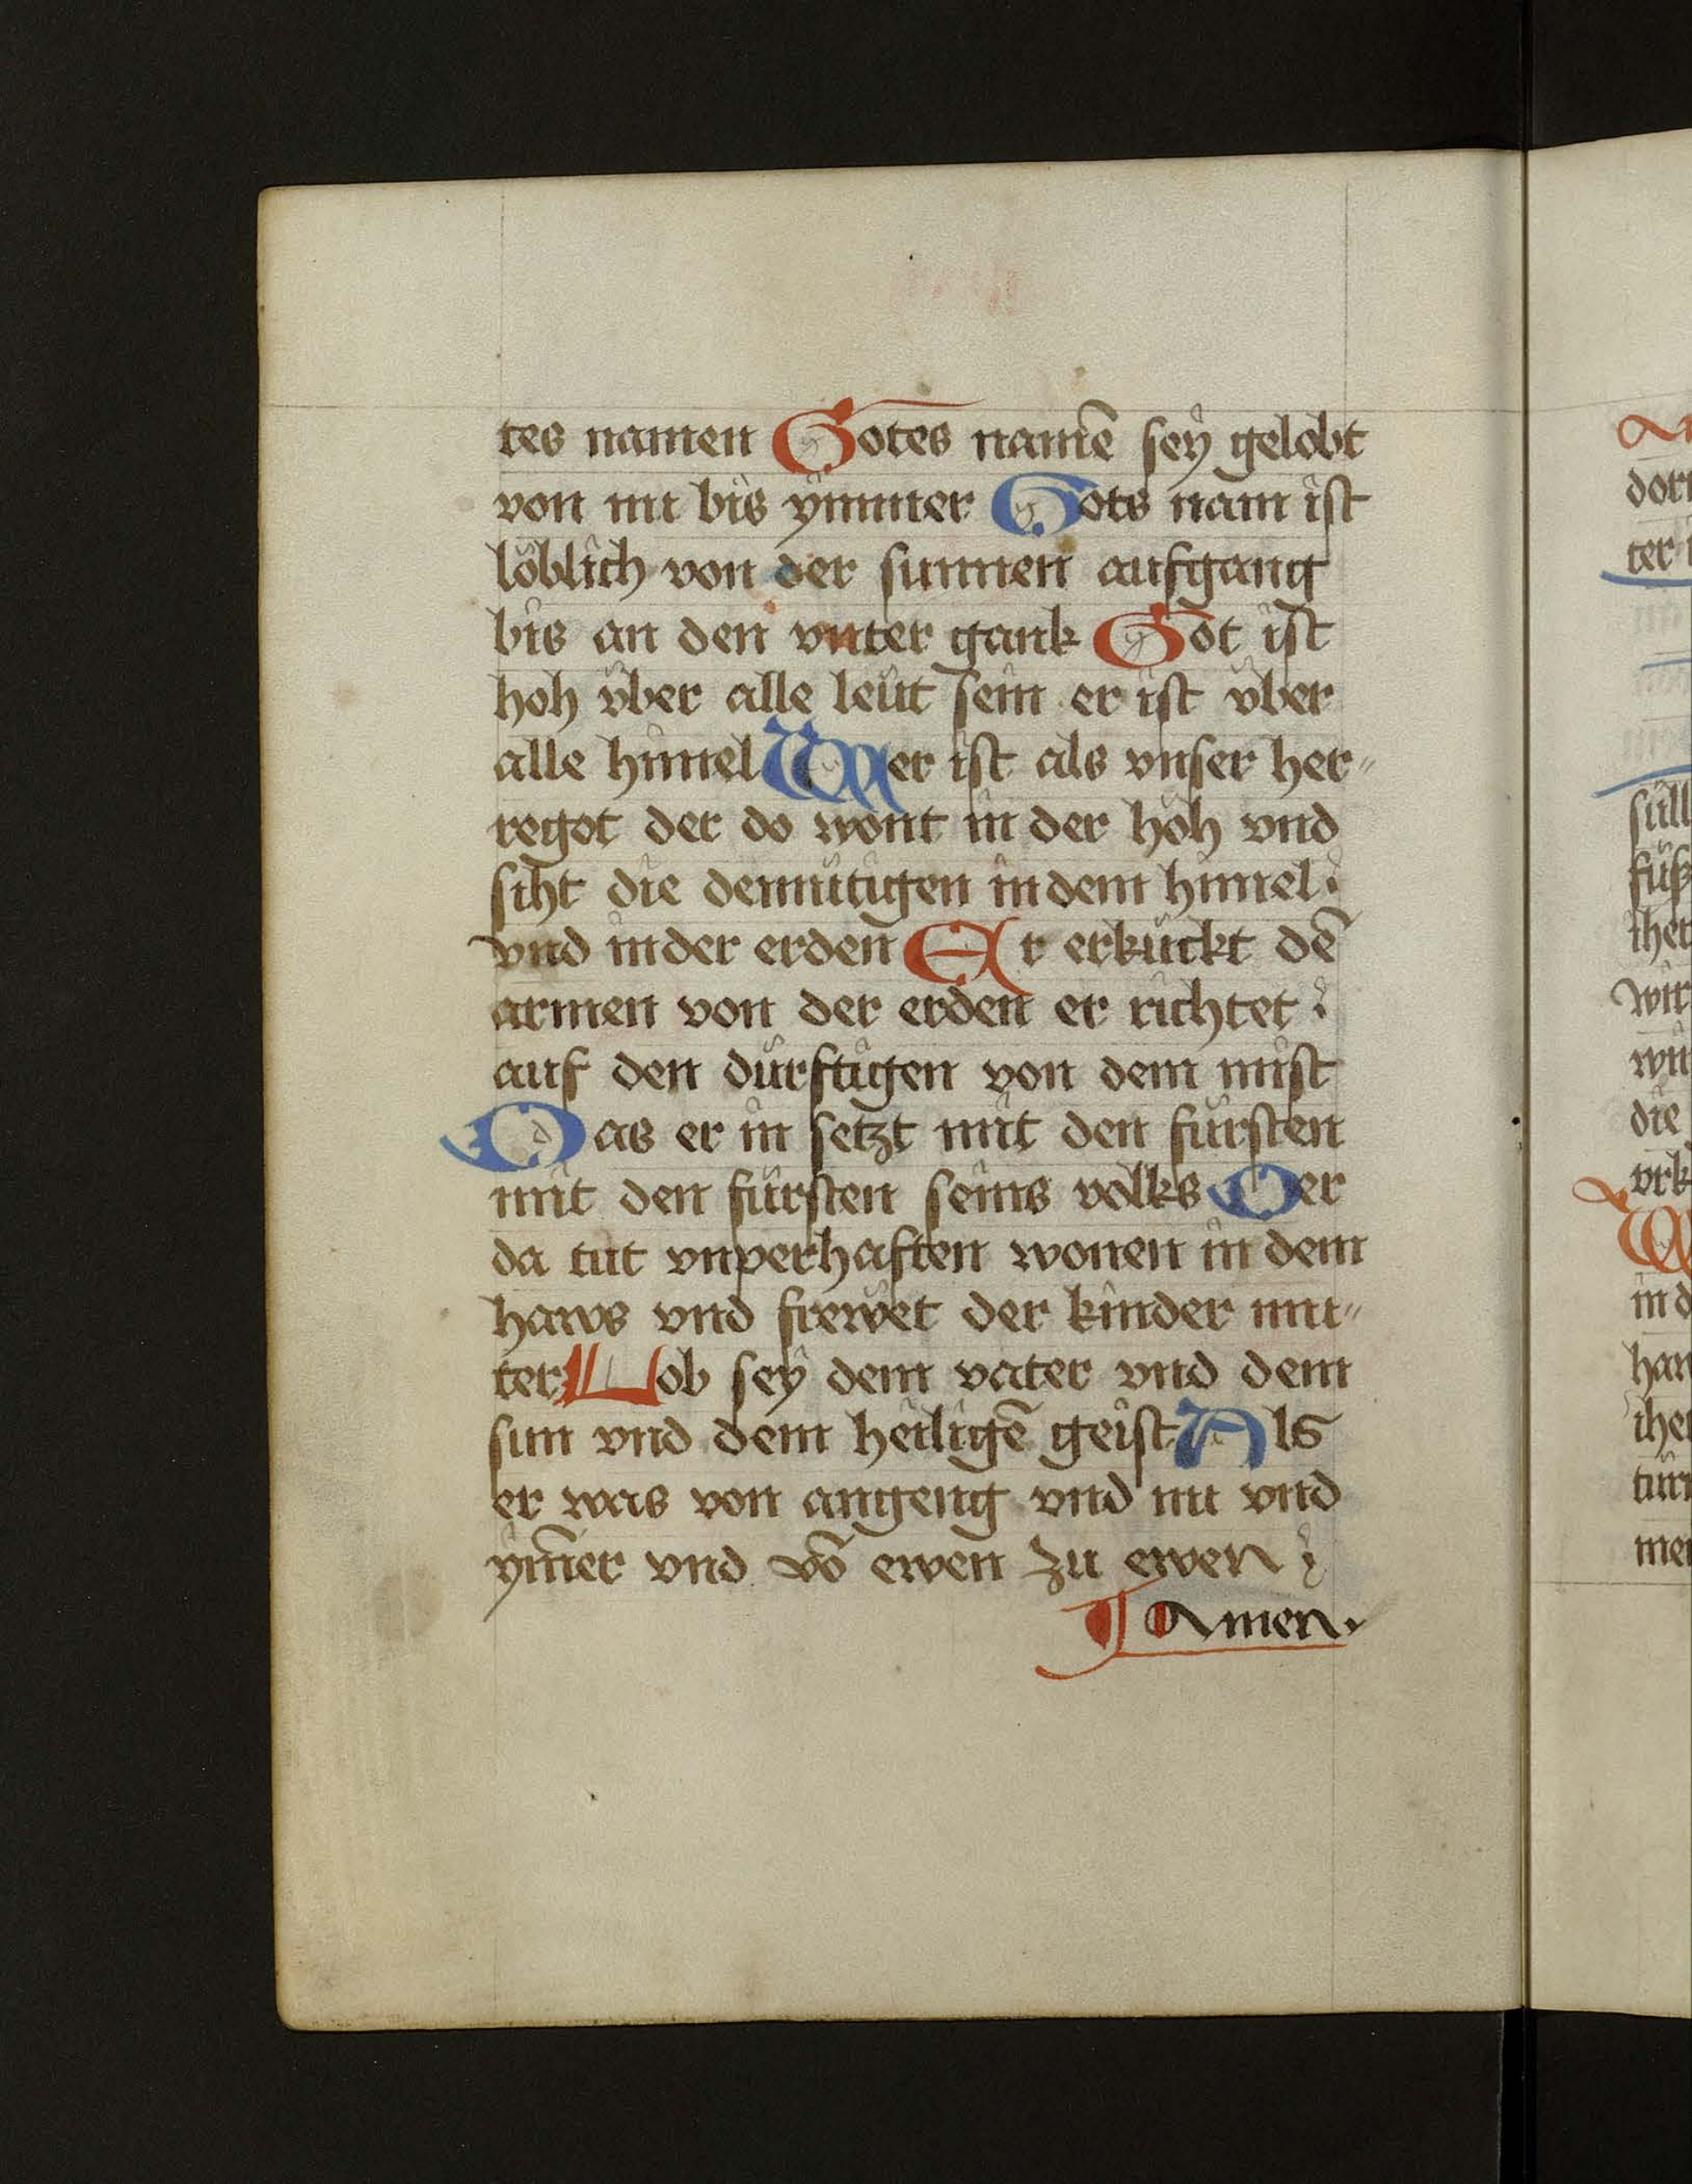 tes namen Gotes namē sey gelobt
von nu bis ymmer Gots nam ist
löblich von der sunnen aufgang
bis an den vnter gank Got ist
hoh vber alle leut sein er ist vber
alle himel Wer ist als vnser her"
regot der do wont in der höh vnd
siht die demütigen in dem himel.
vnd in der erden Er erkückt dē
armen von der erden er richtet
auf den dürftigen von dem mist
Das er in setzt mit den fürsten
mit den fürsten seins volks Der
da tut vnperhaften wonen in dem
haws vnd frewet der kinder mu"
ter Lob sey dem vater vnd dem
sun vnd dem heiligē geist Als
er was von angeng vnd nu vnd
ym̄er vnd vō ewen zu ewen
Amen.
dor
ter
süll
füß
wir
die
vrk
W
in d
han
ihe
tür
me